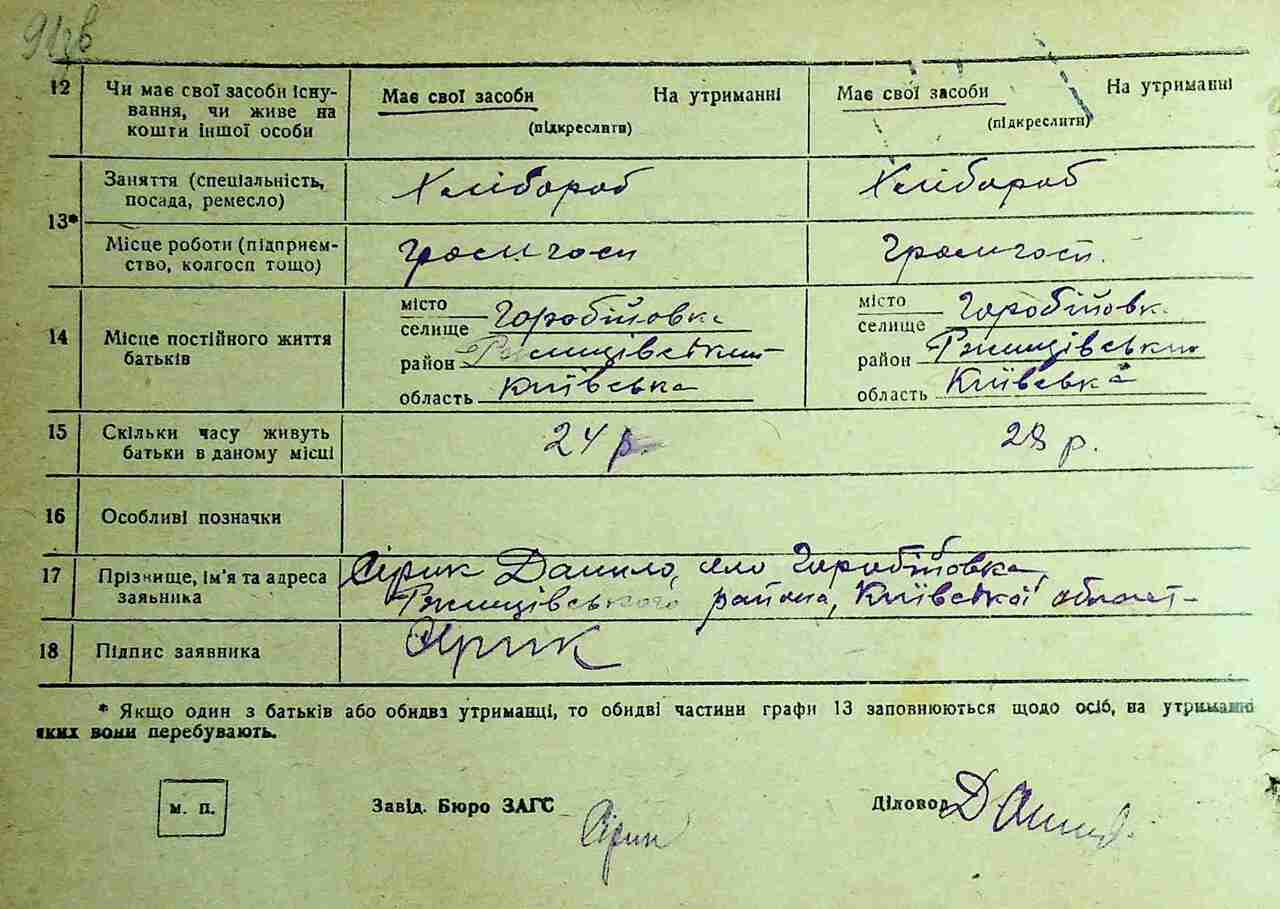 91зв
12 Чи має свої засоби існу- Має свої засоби На утриманні Має свої засоби На утриманні
вання, чи живе на (підкреслити) (підкреслити)
кошти іншої особи
13* Заняття (спеціальність, Хлібороб Хлібороб
посада, ремесло)
Місце роботи (підприєм- громгосп громгосп.
ство, колгосп тощо)
14 Місце постійного життя місто місто
батьків селище Горобіївка селище Горобіївка
район Ржищівський район Ржищівський
область Київська область Київська
15 Скільки часу живуть 24 р. 28 р.
батьки в даному місці
16 Особливі позначки
17 Прізнище, ім'я та адреса Сірик Данило, село Горобіївка
заявника Ржищівського района, Київської област
18 Підпис заявника Сірик
* Якщо один з батьків або обидва утриманці, то обидві частини графи 13 заповнюються щодо осіб, на утриманні
яких вони перебувають.
м. п. Завід. Бюро ЗАГС Сірик Діловод